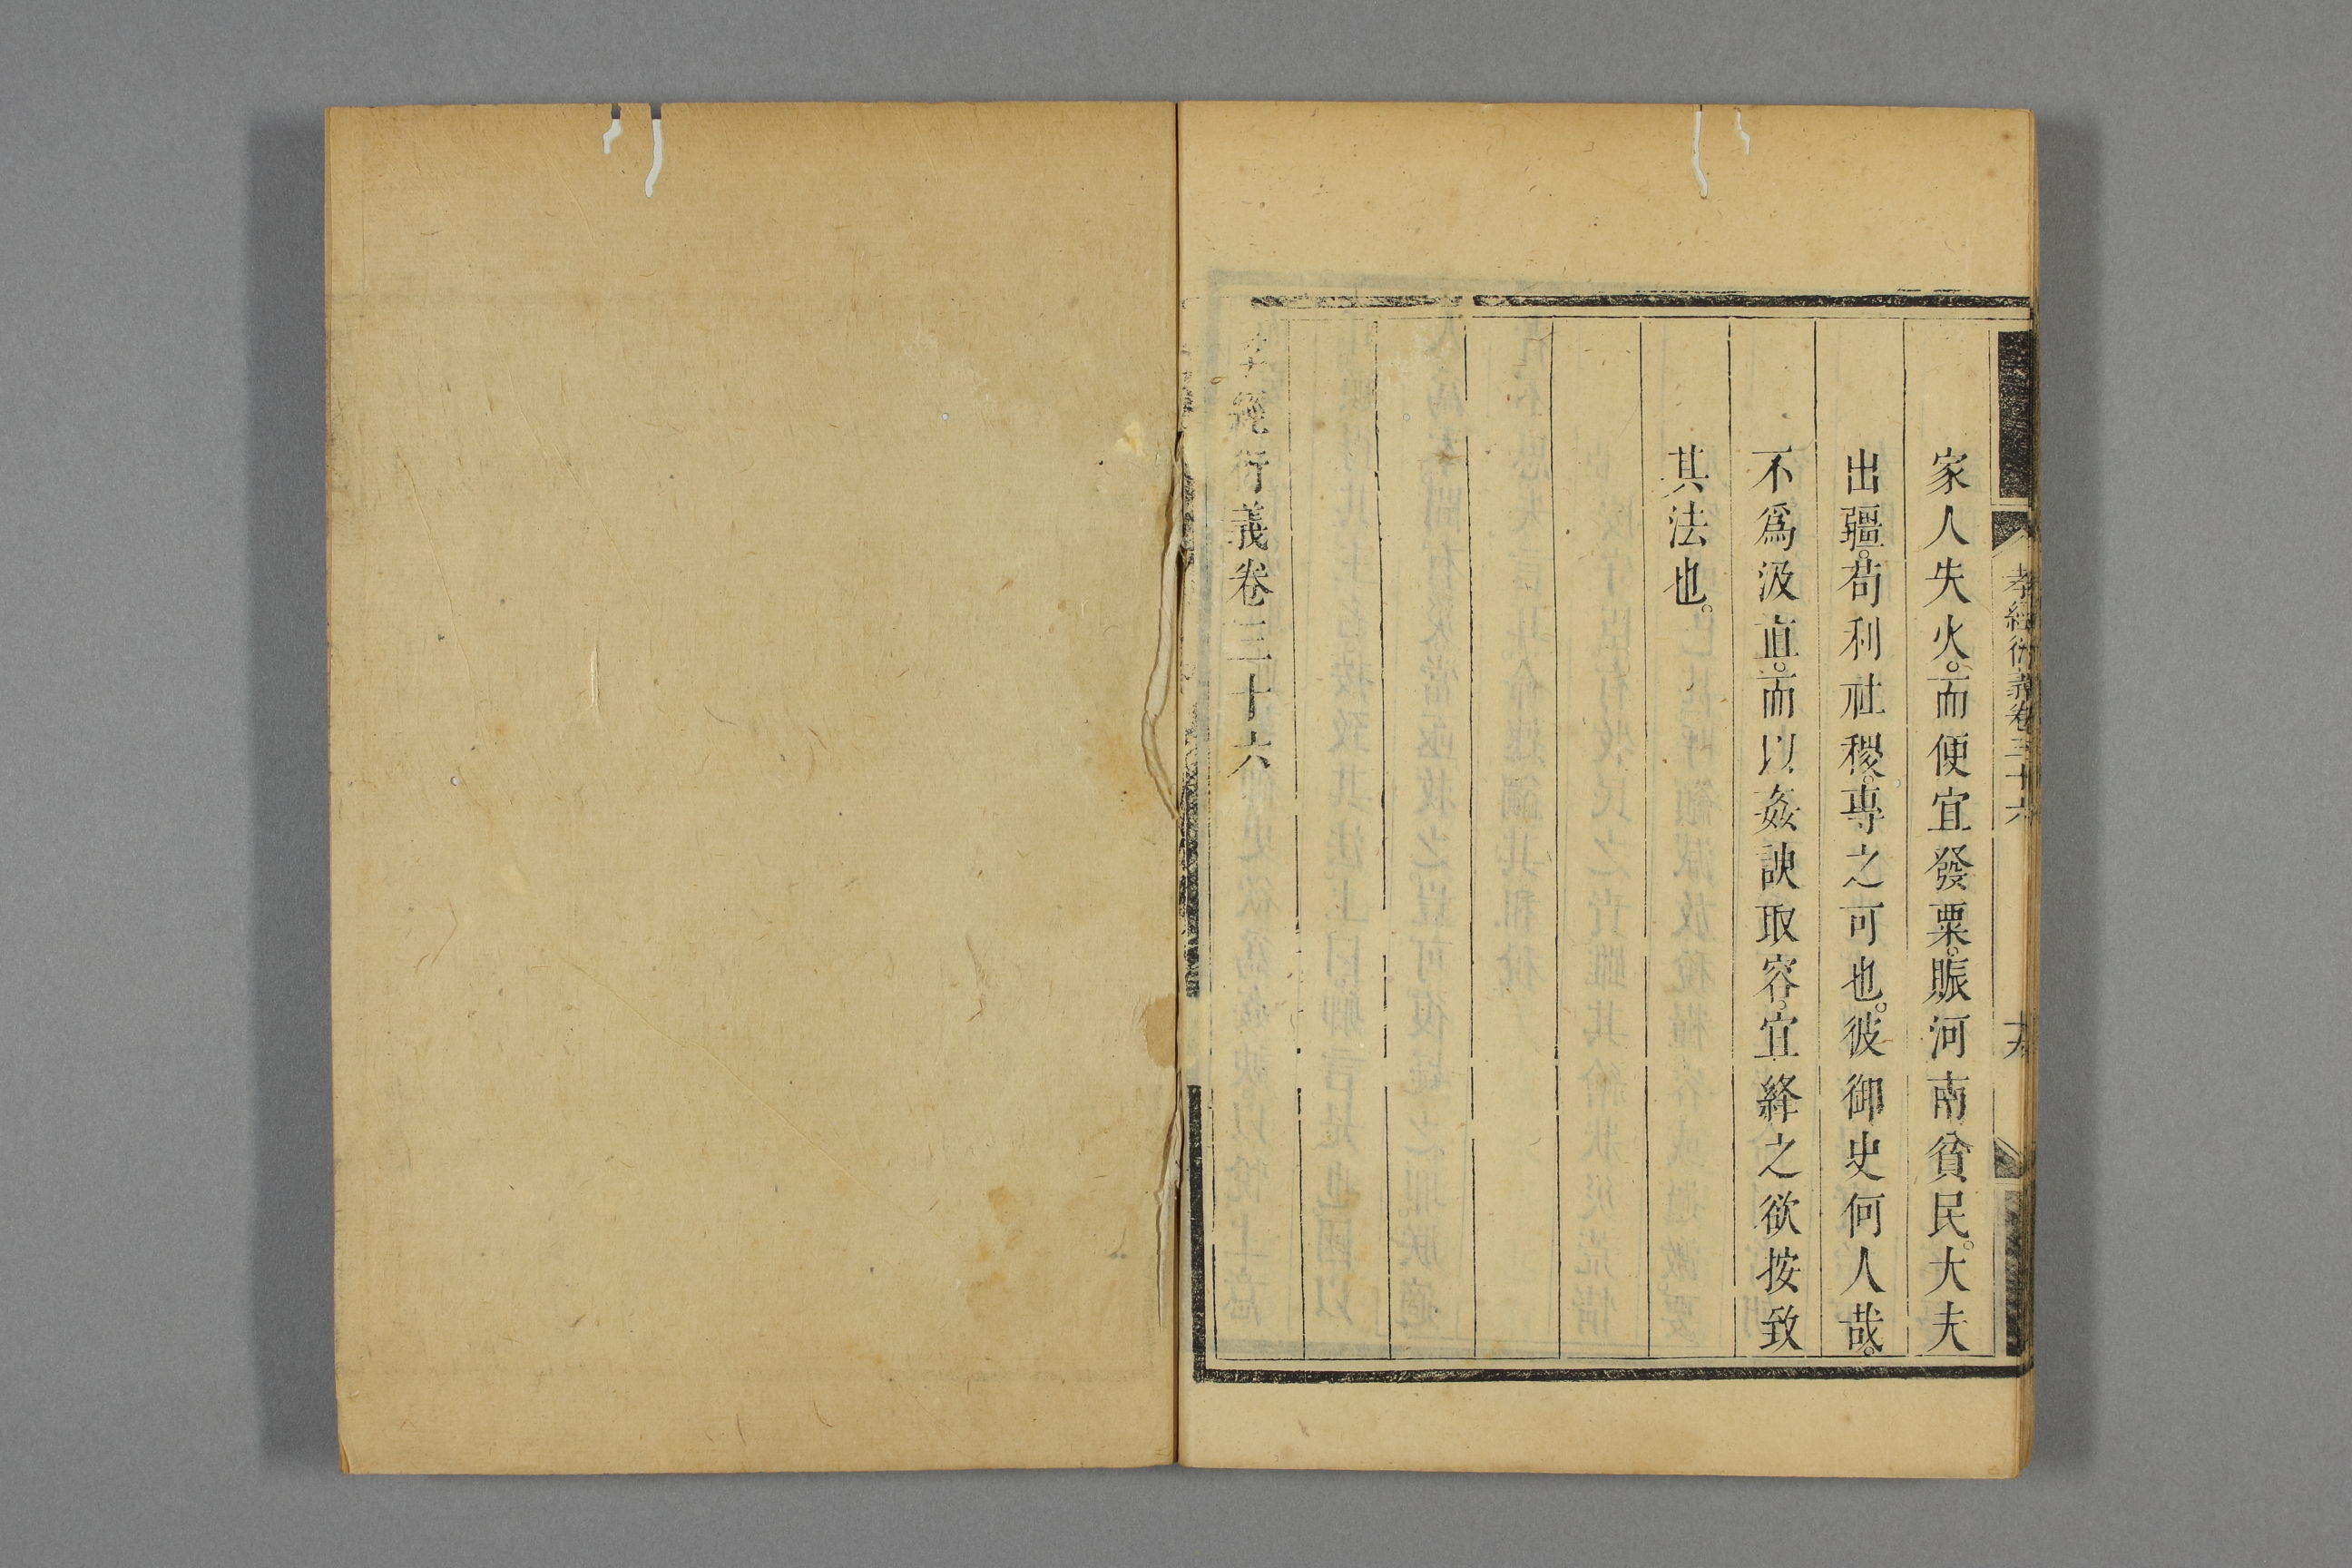 孝經衍義卷三十六
家人失火。而便宜發粟。賑河南貧民。大夫
出疆。苟利社稷。專之可也。彼御史何人哉。
不爲汲直。而以姦諛取容。宜絳之欲按致
其法也。
孝經衍義卷三十六